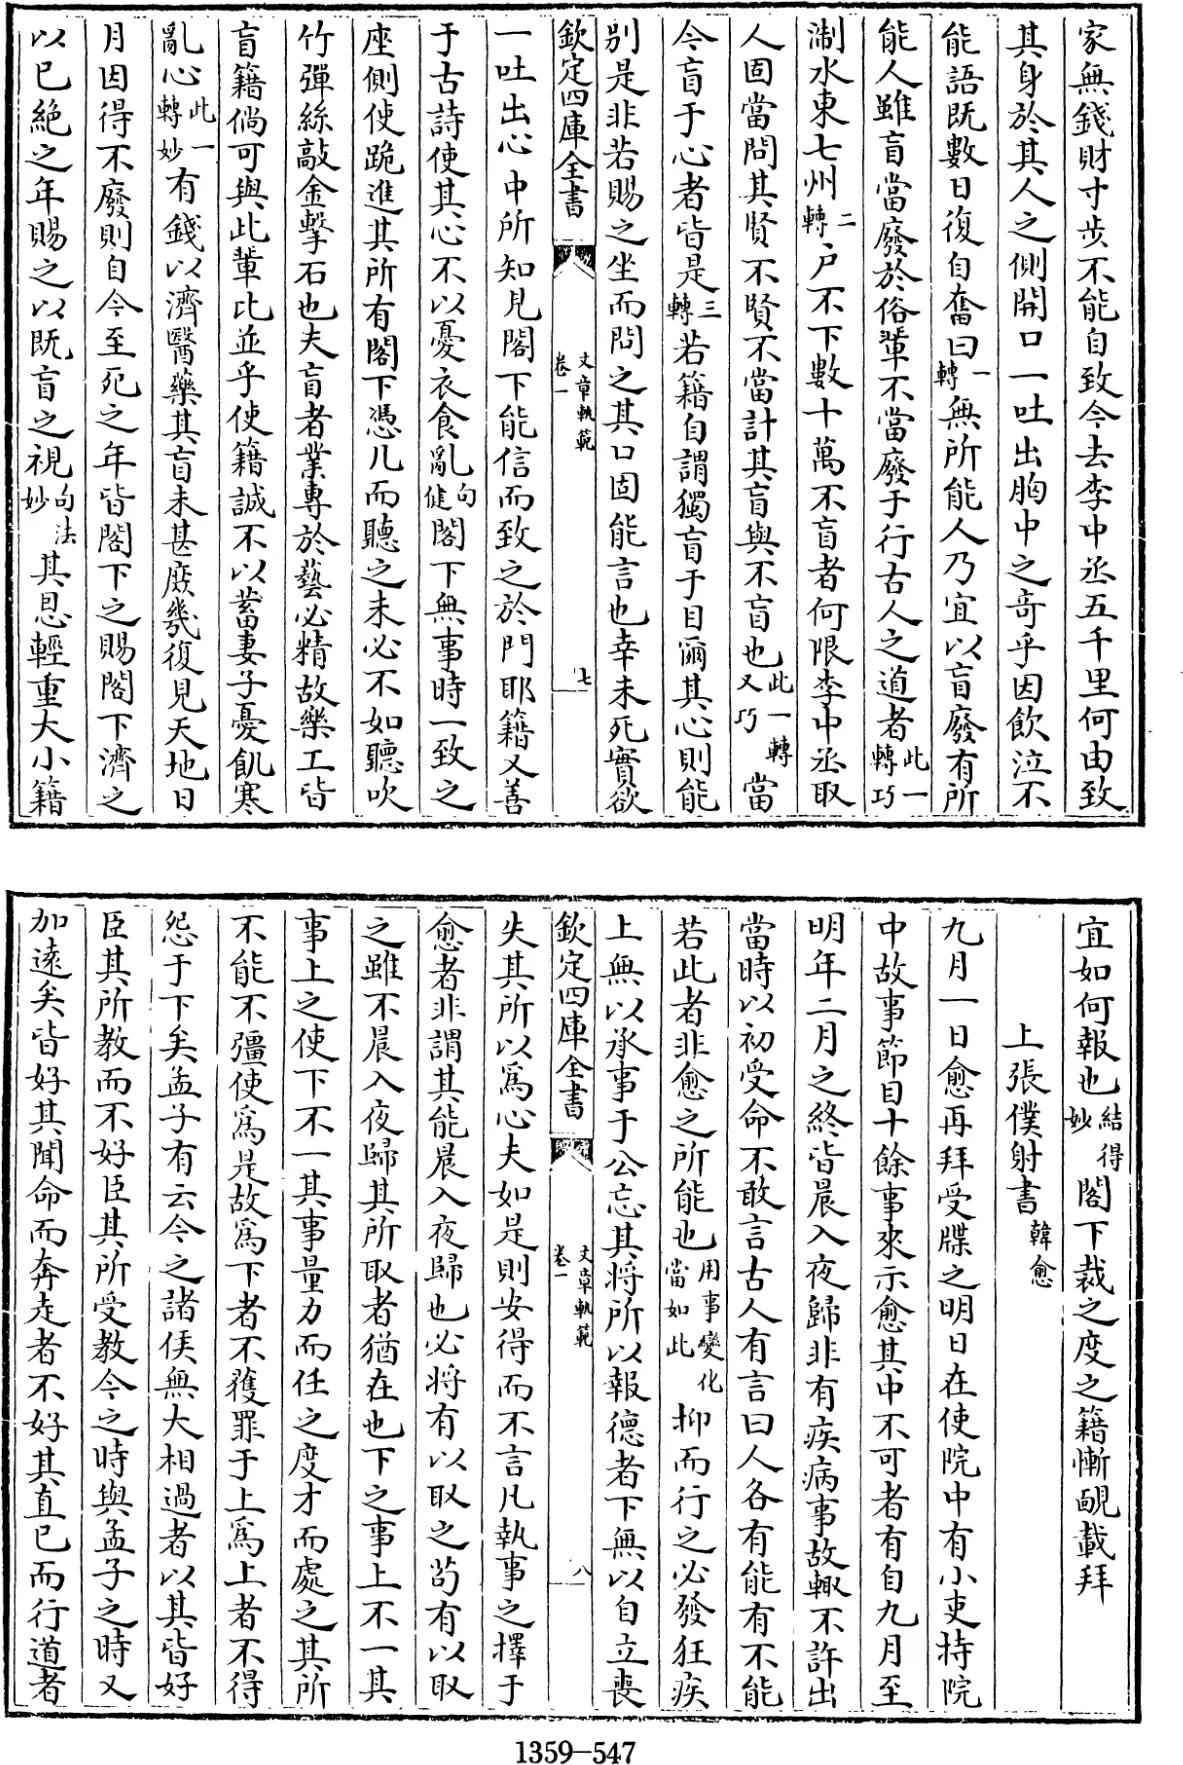 家無錢財寸步不能自致今去李中丞五千里何由致
其身於其人之側開口一吐出胸中之奇乎因飲泣不
能語既數日復自奮曰一轉無所能人乃宜以盲廢有所
能人雖盲當廢於俗輩不當廢于行古人之道者此一轉巧
淛水東七州二轉戸不下數十萬不盲者何限李中丞取
人固當問其賢不賢不當計其盲與不盲也此一轉又巧當
今盲于心者皆是三轉若籍自謂獨盲于目爾其心則能
别是非若賜之坐而問之其口固能言也幸未死實欲
欽定四庫全書 文章軌範 卷一 七
一吐出心中所知見閣下能信而致之於門耶籍又善
于古詩使其心不以憂衣食亂句健閣下無事時一致之
座側使跪進其所有閣下憑几而聽之未必不如聽吹
竹彈絲敲金擊石也夫盲者業專於藝必精故樂工皆
盲籍倘可與此輩比並乎使籍誠不以蓄妻子憂飢寒
亂心此一轉妙有錢以濟醫藥其盲未甚庶幾復見天地日
月因得不廢則自今至死之年皆閣下之賜閣下濟之
以已絶之年賜之以既盲之視句法妙其恩輕重大小籍
宜如何報也結得妙閣下裁之度之籍慚靦載拜
上張僕射書 韓愈
九月一日愈再拜受牒之明日在使院中有小吏持院
中故事節目十餘事來示愈其中不可者有自九月至
明年二月之終皆晨入夜歸非有疾病事故輙不許出
當時以初受命不敢言古人有言曰人各有能有不能
若此者非愈之所能也用事變化當如此抑而行之必發狂疾
上無以承事于公忘其將所以報德者下無以自立喪
欽定四庫全書 文章軌範 卷一 八
失其所以爲心夫如是則安得而不言凡執事之擇于
愈者非謂其能晨入夜歸也必將有以取之茍有以取
之雖不晨入夜歸其所取者猶在也下之事上不一其
事上之使下不一其事量力而任之度才而處之其所
不能不彊使爲是故爲下者不獲罪于上爲上者不得
怨于下矣孟子有云今之諸侯無大相過者以其皆好
臣其所教而不好臣其所受教今之時與孟子之時又
加遠矣皆好其聞命而奔走者不好其直已而行道者
1359-547